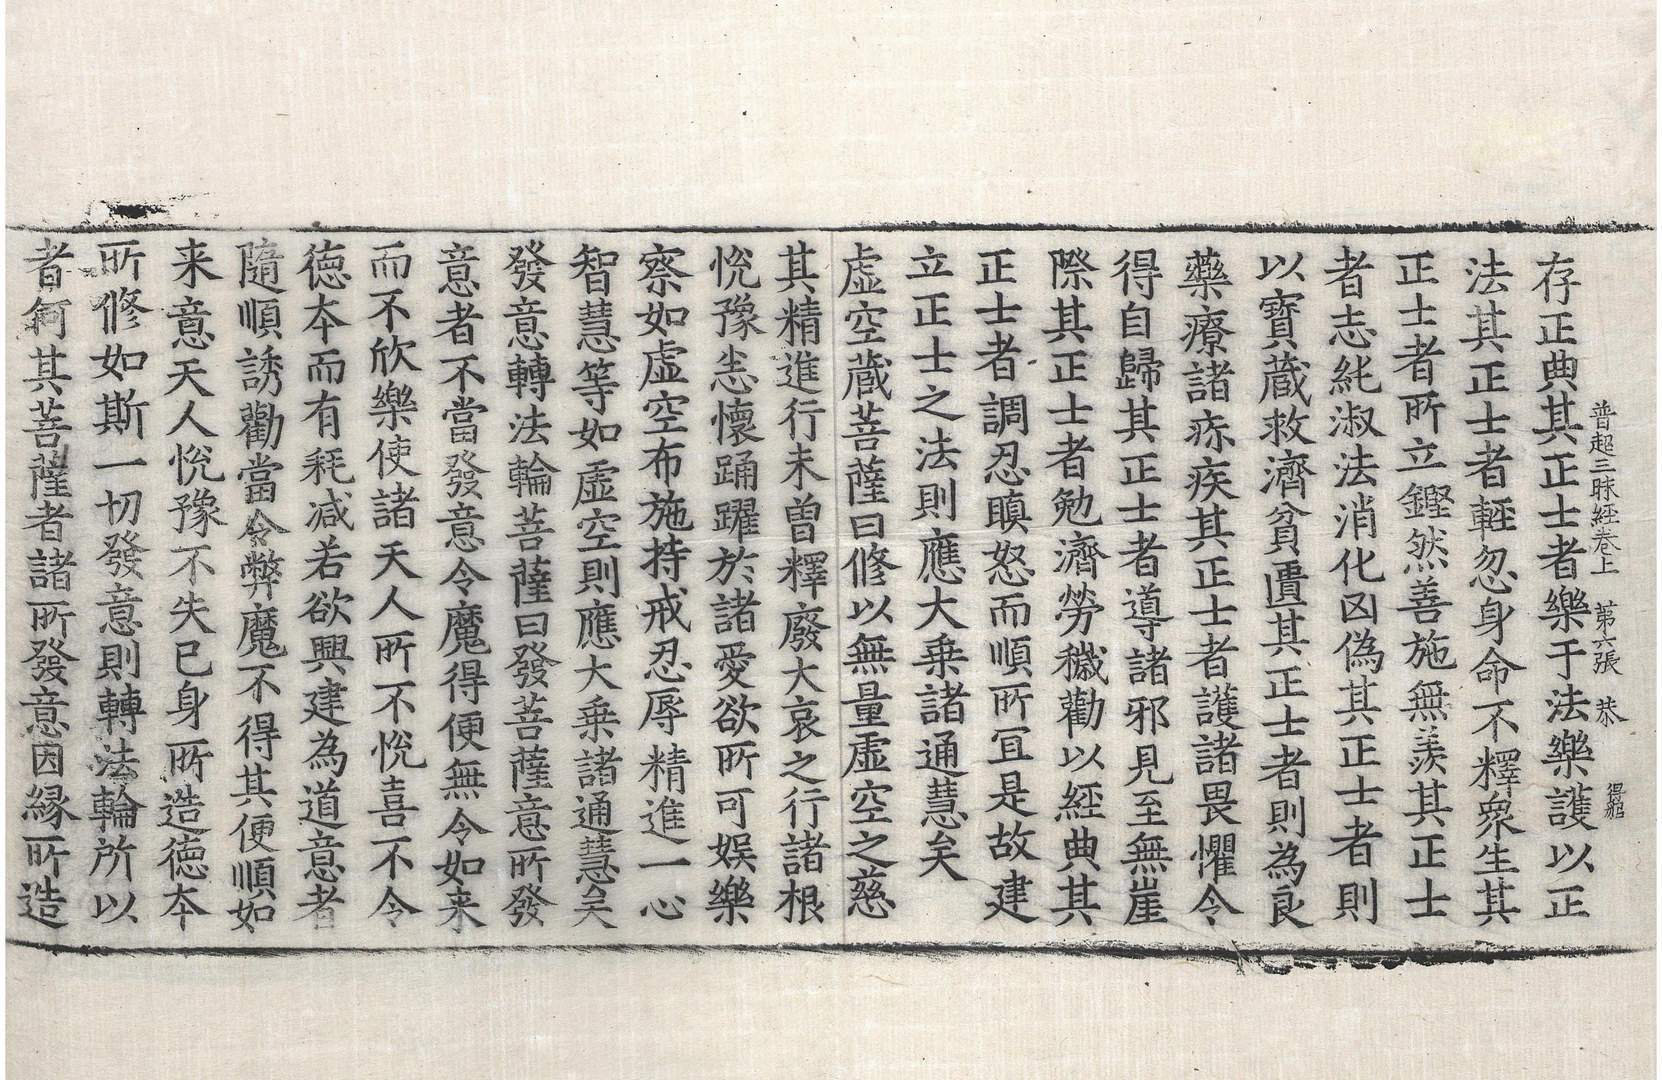 普超三昧經卷上 第六張 恭
存正典其正士者樂于法樂護以正
法其正士者輕忽身命不釋衆生其
正士者所立鏗然善施無羨其正士
者志純淑法消化凶偽其正士者則
以寶藏救濟貧匱其正士者則為良
藥療諸疹疾其正士者護諸畏懼令
得自歸其正士者導諸邪見至無崖
際其正士者勉濟勞穢勸以經典其
正士者調忍瞋怒而順所冝是故建
立正士之法則應大乗諸通慧矣
虛空蔵菩薩曰修以無量虛空之慈
其精進行未曾釋廢大哀之行諸根
恱豫恚懷踊躍於諸愛欲所可娛樂
察如虛空布施持戒忍辱精進一心
智慧等如虛空則應大乗諸通慧矣
發意轉法輪菩薩曰發菩薩意所發
意者不當發意令魔得便無令如来
而不欣樂使諸天人所不恱喜不令
徳夲而有耗减若欲興建為道意者
隨順誘勸當令弊魔不得其便順如
来意天人恱豫不失已身所造徳夲
所修如斯一切發意則轉法輪所以
者何其菩薩者諸所發意因縁所造